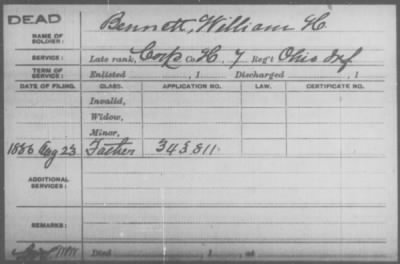 DEAD
Bennett, William H
NAME OF SOLDIER:
SERVICE: Late rank, Corp Co. H, 7 Reg't Ohio Inf
TERM OF SERVICE: Enlisted , 1 Discharged , 1
DATE OF FILING. CLASS. APPLICATION NO. LAW. CERTIFICATE NO.
Invalid,
Widow,
Minor,
1886 Aug 23 Father 343.811
ADDITIONAL SERVICES:
REMARKS:
Died , 1 , at